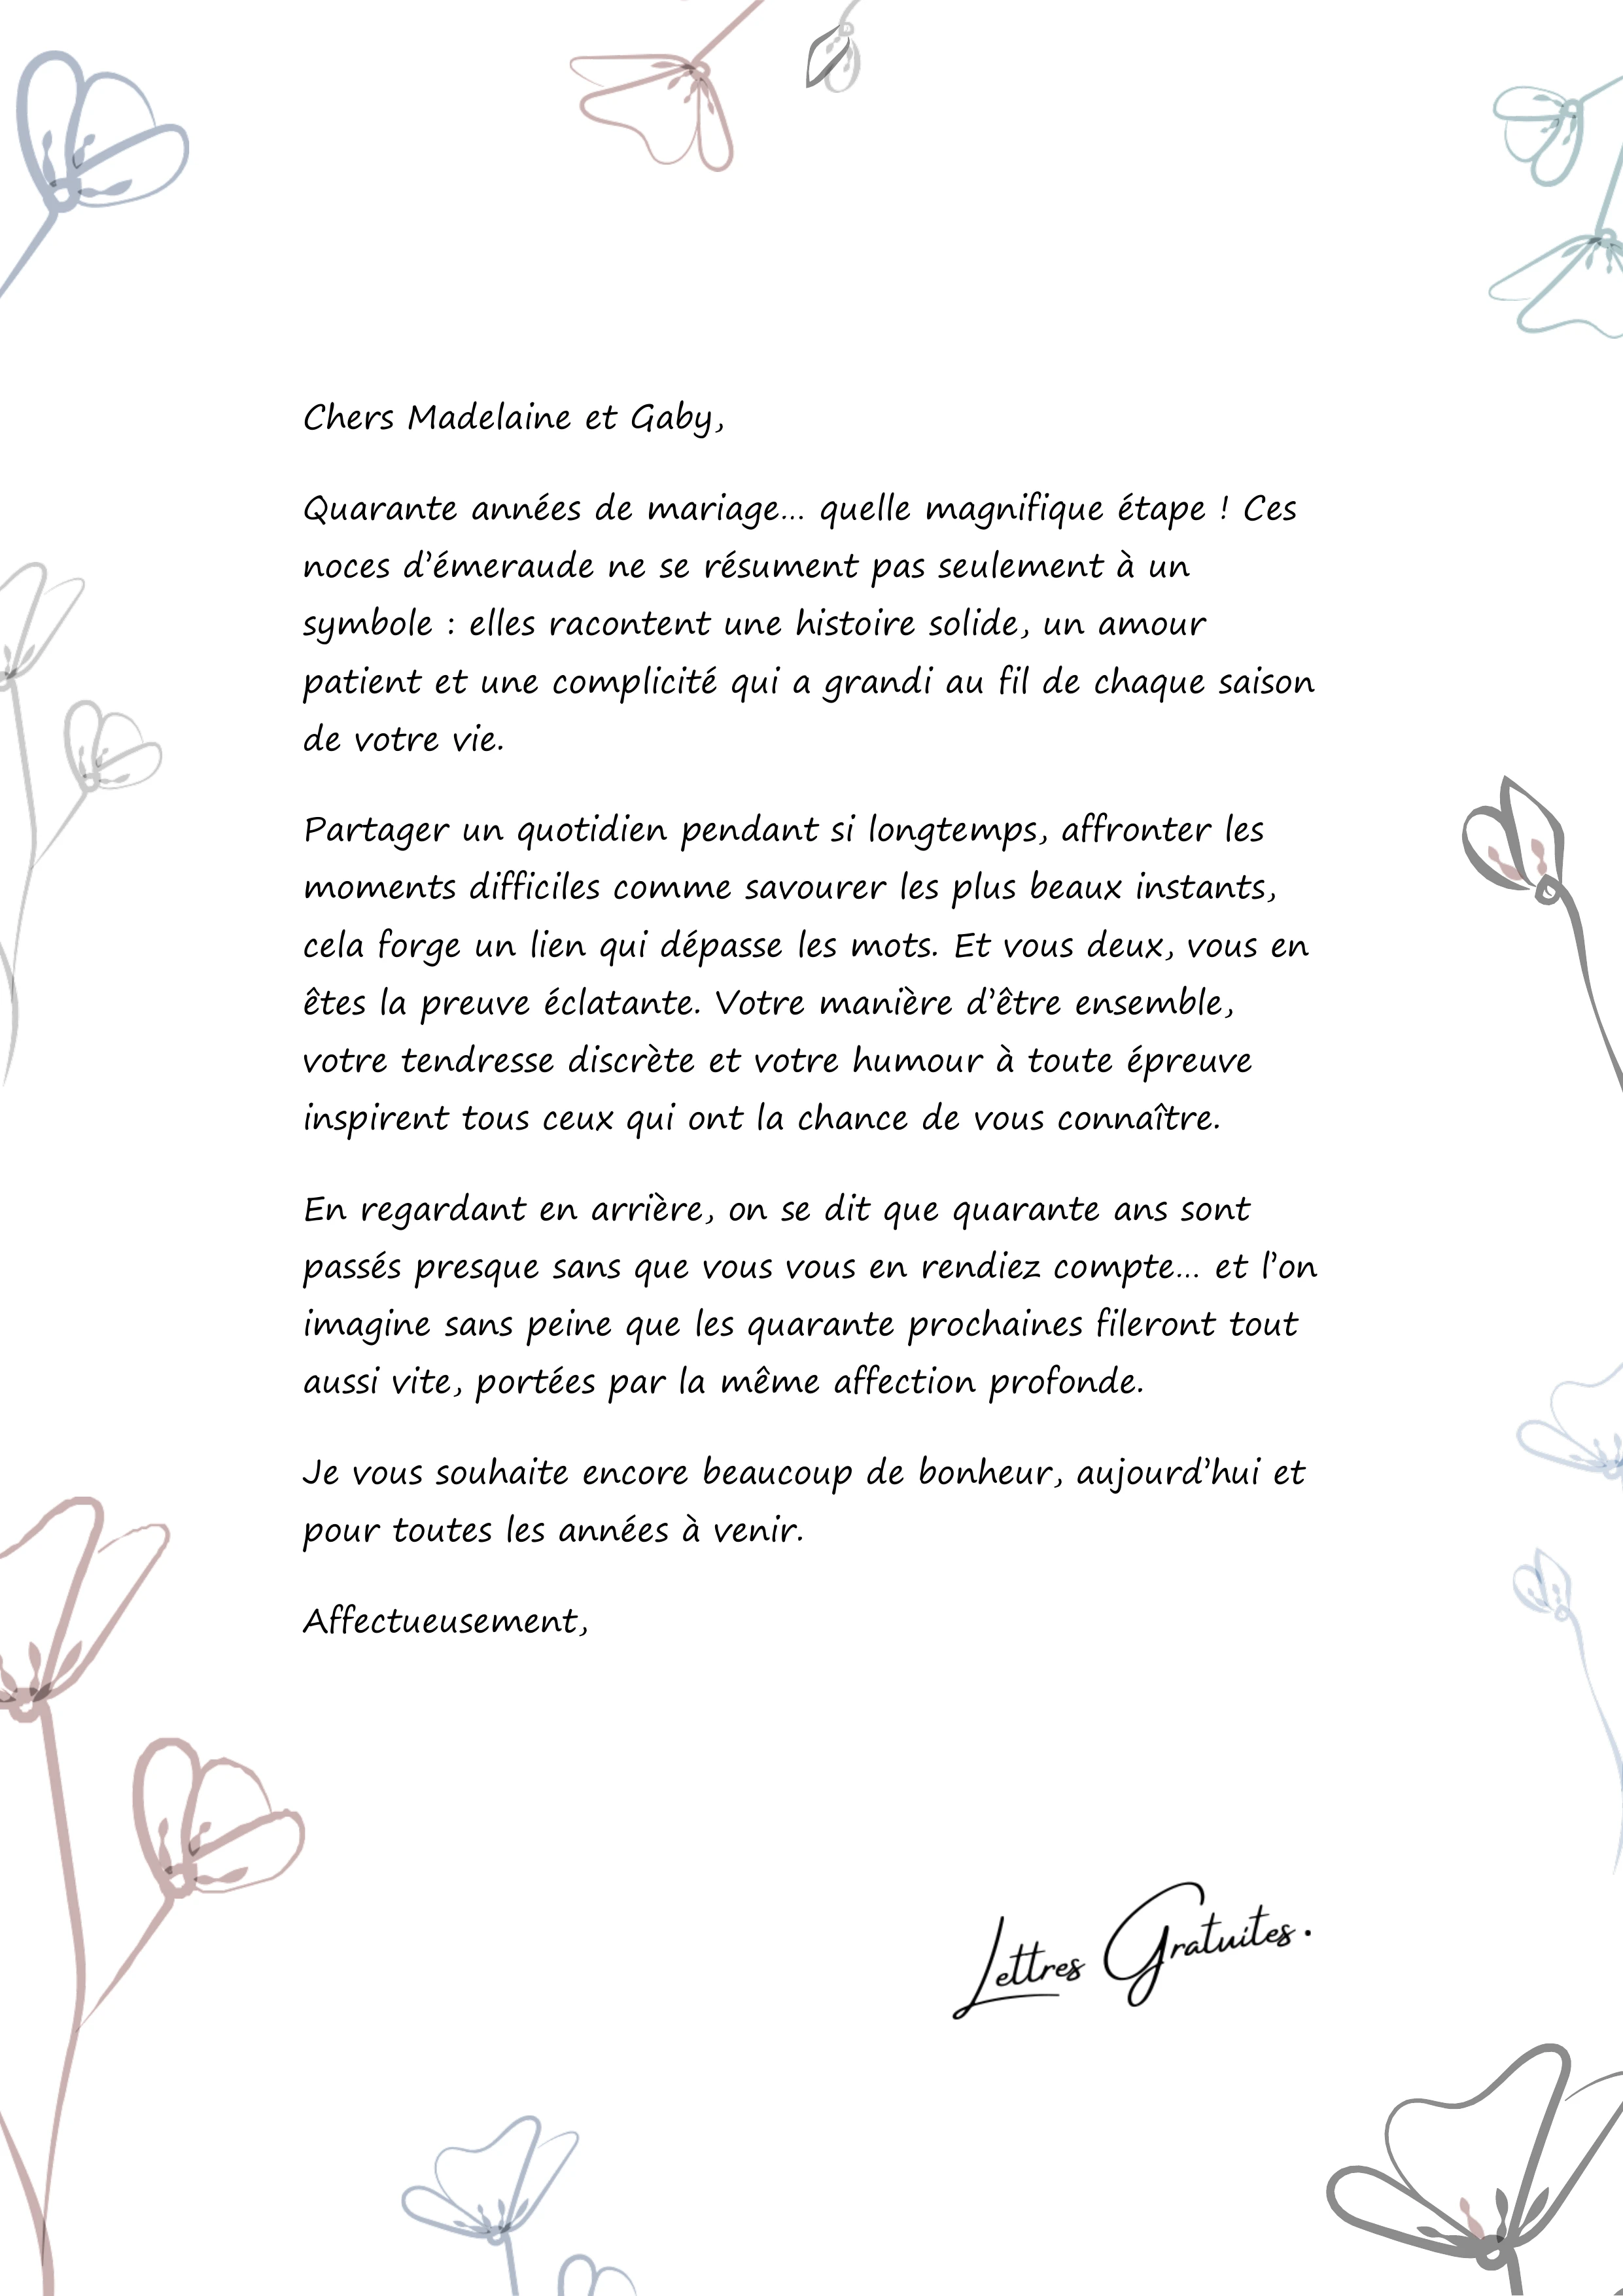 Chers Madelaine et Gaby,
Quarante années de mariage... quelle magnifique étape ! Ces
noces d’émeraude ne se résument pas seulement à un
symbole : elles racontent une histoire solide, un amour
patient et une complicité qui a grandi au fil de chaque saison
de votre vie.
Partager un quotidien pendant si longtemps, affronter les
moments difficiles comme savourer les plus beaux instants,
cela forge un lien qui dépasse les mots. Et vous deux, vous en
êtes la preuve éclatante. Votre manière d’être ensemble,
votre tendresse discrète et votre humour à toute épreuve
inspirent tous ceux qui ont la chance de vous connaître.
En regardant en arrière, on se dit que quarante ans sont
passés presque sans que vous vous en rendiez compte... et l’on
imagine sans peine que les quarante prochaines fileront tout
aussi vite, portées par la même affection profonde.
Je vous souhaite encore beaucoup de bonheur, aujourd’hui et
pour toutes les années à venir.
Affectueusement,
Lettres Gratuites.